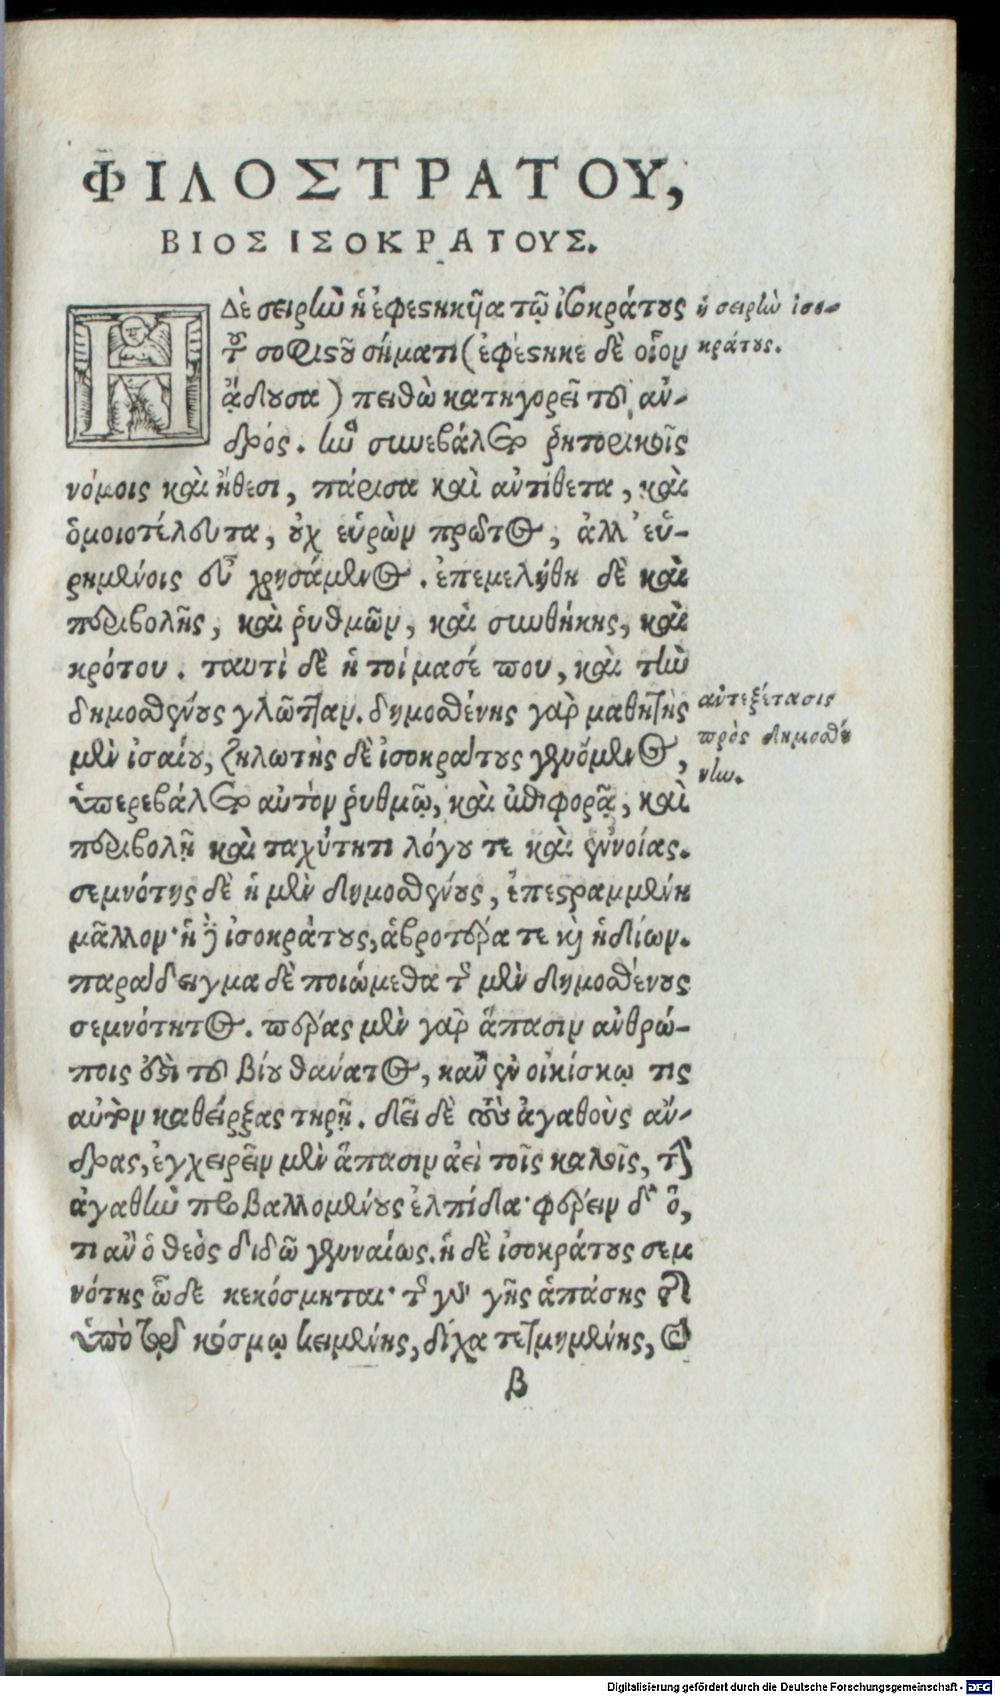 ΦΙΛΟΣΤΡΑΤΟΥ,
ΒΙΟΣ ΙΣΟΚΡΑΤΟΥΣ.
Η ΔÈ σειρὴν ἡ ἐφεστηκῦα τῷ ἰσοκράτους
τοῦ σοφιστοῦ σήματι (ἐφέστηκε δὲ οἷον
ᾄδουσα) πειθὼ κατηγορεῖ τοῦ ἀν-
δρός. ἣν συνεβάλετο ῥητορικοῖς
νόμοις καὶ ἤθεσι, πάρισα καὶ ἀντίθετα, καὶ
ὁμοιοτέλευτα, οὐχ εὑρὼν πρῶτος, ἀλλ' εὑ-
ρημένοις εὖ χρησάμενος. ἐπεμελήθη δὲ καὶ
περιβολῆς, καὶ ῥυθμῶν, καὶ συνθήκης, καὶ
κρότου. ταυτὶ δὲ ἡτοίμασέ που, καὶ τὴν
δημοσθένους γλῶτταν. δημοσθένης γὰρ μαθητὴς
μὲν ἰσαίου, ζηλωτὴς δὲ ἰσοκράτους γενόμενος,
ὑπερεβάλετο αὐτὸν ῥυθμῷ, καὶ ἐπιφορᾷ, καὶ
περιβολῇ καὶ ταχύτητι λόγου τε καὶ ἐννοίας.
σεμνότης δὲ ἡ μὲν δημοσθένους, ἐπεστραμμένη
μᾶλλον· ἡ δὲ ἰσοκράτους, ἁβροτέρα τε καὶ ἡδίων.
παράδειγμα δὲ ποιώμεθα τῆς μὲν δημοσθένους
σεμνότητος. πέρας μὲν γὰρ ἅπασιν ἀνθρώ-
ποις ἐστὶ τοῦ βίου θάνατος, κἂν ἐν οἰκίσκῳ τις
αὑτὸν καθείρξας τηρῇ. δεῖ δὲ τοὺς ἀγαθοὺς ἄν-
δρας, ἐγχειρεῖν μὲν ἅπασιν ἀεὶ τοῖς καλοῖς, τὴν
ἀγαθὴν προβαλλομένους ἐλπίδα· φέρειν δ' ὅ,
τι ἂν ὁ θεὸς διδῷ γενναίως. ἡ δὲ ἰσοκράτους σεμ
νότης ὧδε κεκόσμηται· τῆς γὰρ γῆς ἁπάσης τῆς
ὑπὸ τῷ κόσμῳ κειμένης, δίχα τετμημένης, καὶ
β
ἡ σειρὴν ἰσο-
κράτους.
ἀντεξέτασις
πρὸς δημοσθέ
νην.
Digitalisierung gefördert durch die Deutsche Forschungsgemeinschaft - DFG